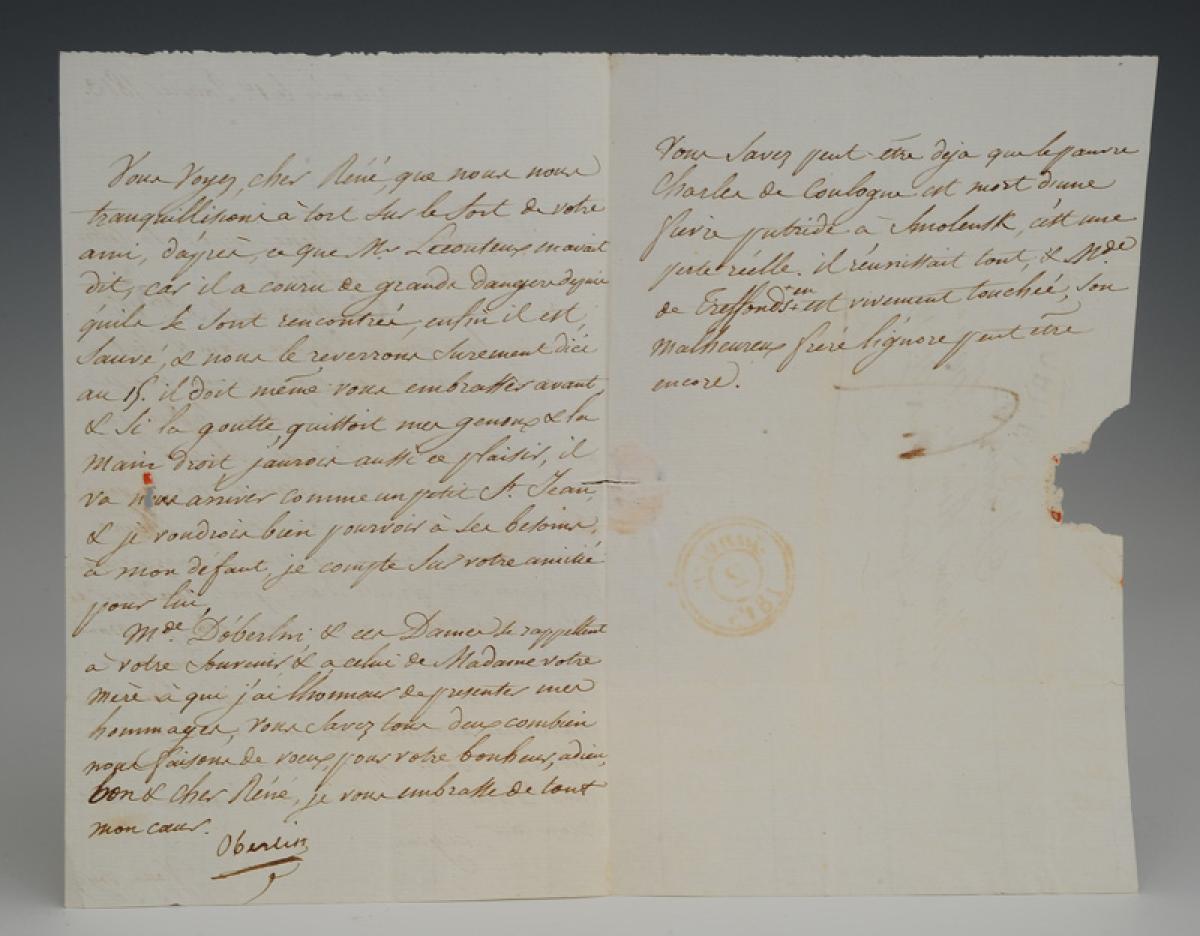 Vous Voyez, cher Réné, que nous nous
tranquillisions à tort sur le Sort de votre
ami, d'après, ce que Mr Lecouteux m'avait
dit, car il a couru de grands dangers depuis
qu'ils se sont rencontrés, enfin il est
Sauvé, & nous le reverrons surement d'ici
au 15. il doit même vous embrasser avant
& Si la goutte quittoit mes genoux & la
main droit, j'aurois aussi ce plaisir, il
va nous arriver comme un petit St. Jean,
& je voudrois bien pourvoir à ses besoins,
à mon défaut, je compte sur votre amitié
pour lui,
Mde. D'oberlin & ces Dames se rappellent
à votre souvenir, & a celui de Madame votre
mère à qui j'ai l'honneur de presenter mes
hommages, vous savez tous deux combien
nous faisons de voeux, pour votre bonheur, adieu,
bon & cher Réné, je vous embrasse de tout
mon cœur.
Oberlin
Vous savez peut-être deja que le pauvre
Charles de Coulogne est mort d'une
fièvre putride à Smolensk, c'est une
perte réelle. il réunissait tout, & Mde
de Treffonds en est vivement touchée, son
malheureux frére l'ignore peut être
encore.
2